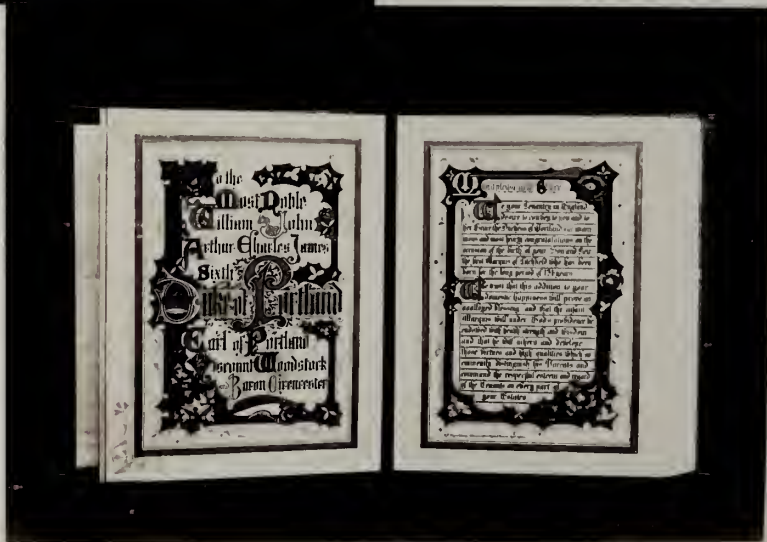 To the
Most Noble
William John
Arthur Charles James
Sixth
Duke of Portland
Earl of Portland
Viscount Woodstock
Baron Cirencester
We your Tenantry in England
desire to convey to you and to
her Grace the Duchess of Portland our warm
and most hearty congratulations on the
occasion of the birth of your Son and Heir
the first Marquis of Titchfield who has been
born for the long period of years
We trust that this addition to your
domestic happiness will prove an
unalloyed blessing and that the infant
Marquis will under God's providence be
endowed with health strength and wisdom
and that he will inherit and develope
those virtues and high qualities which so
eminently distinguish his Parents and
command the respectful esteem and regard
of the Tenants on every part of
your Estates